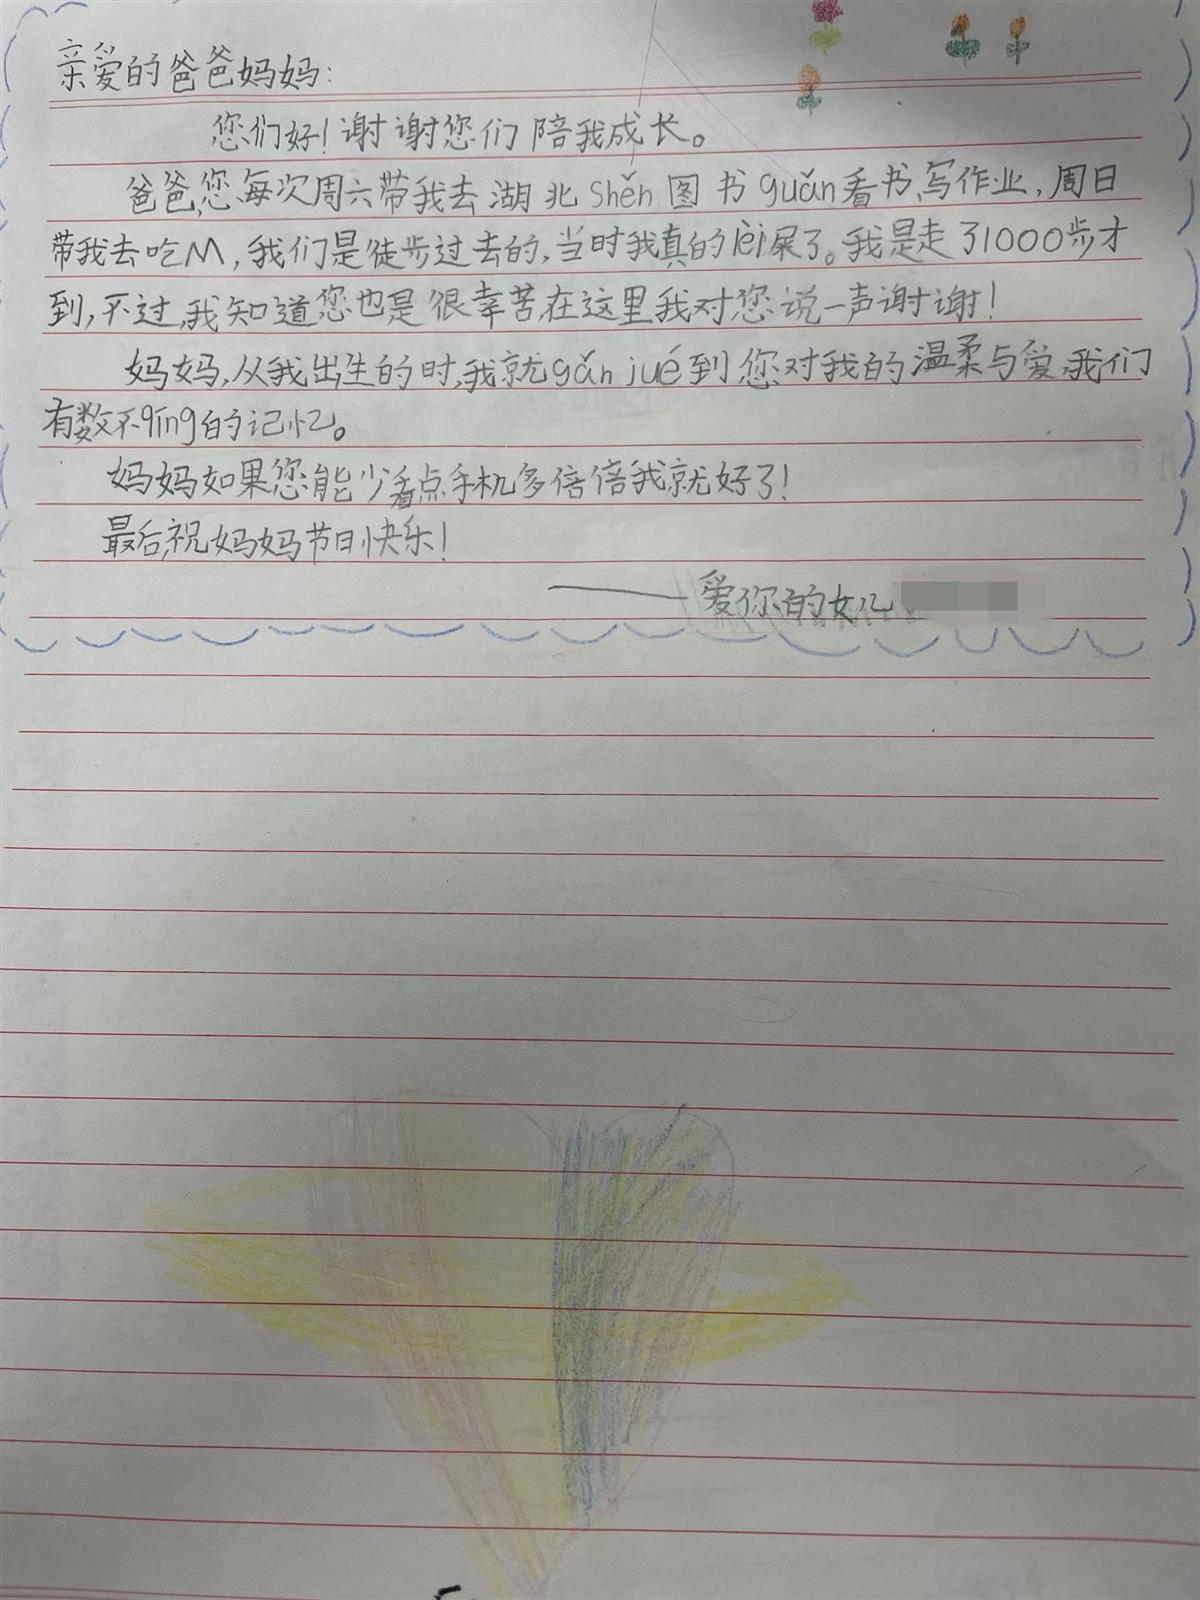 亲爱的爸爸妈妈:
您们好!谢谢您们陪我成长。
爸爸,您每次周六带我去湖北shěn图书guǎn看书,写作业,周日
带我去吃M,我们是徒步过去的,当时我真的lèi屎了。我是走了1000步才
到,不过,我知道您也是很幸苦,在这里我对您说一声谢谢!
妈妈,从我出生的时,我就gǎn jué到您对我的温柔与爱,我们
有数不qīng的记忆。
妈妈如果您能少看点手机多倍倍我就好了!
最后,祝妈妈节日快乐!
——爱你的女儿